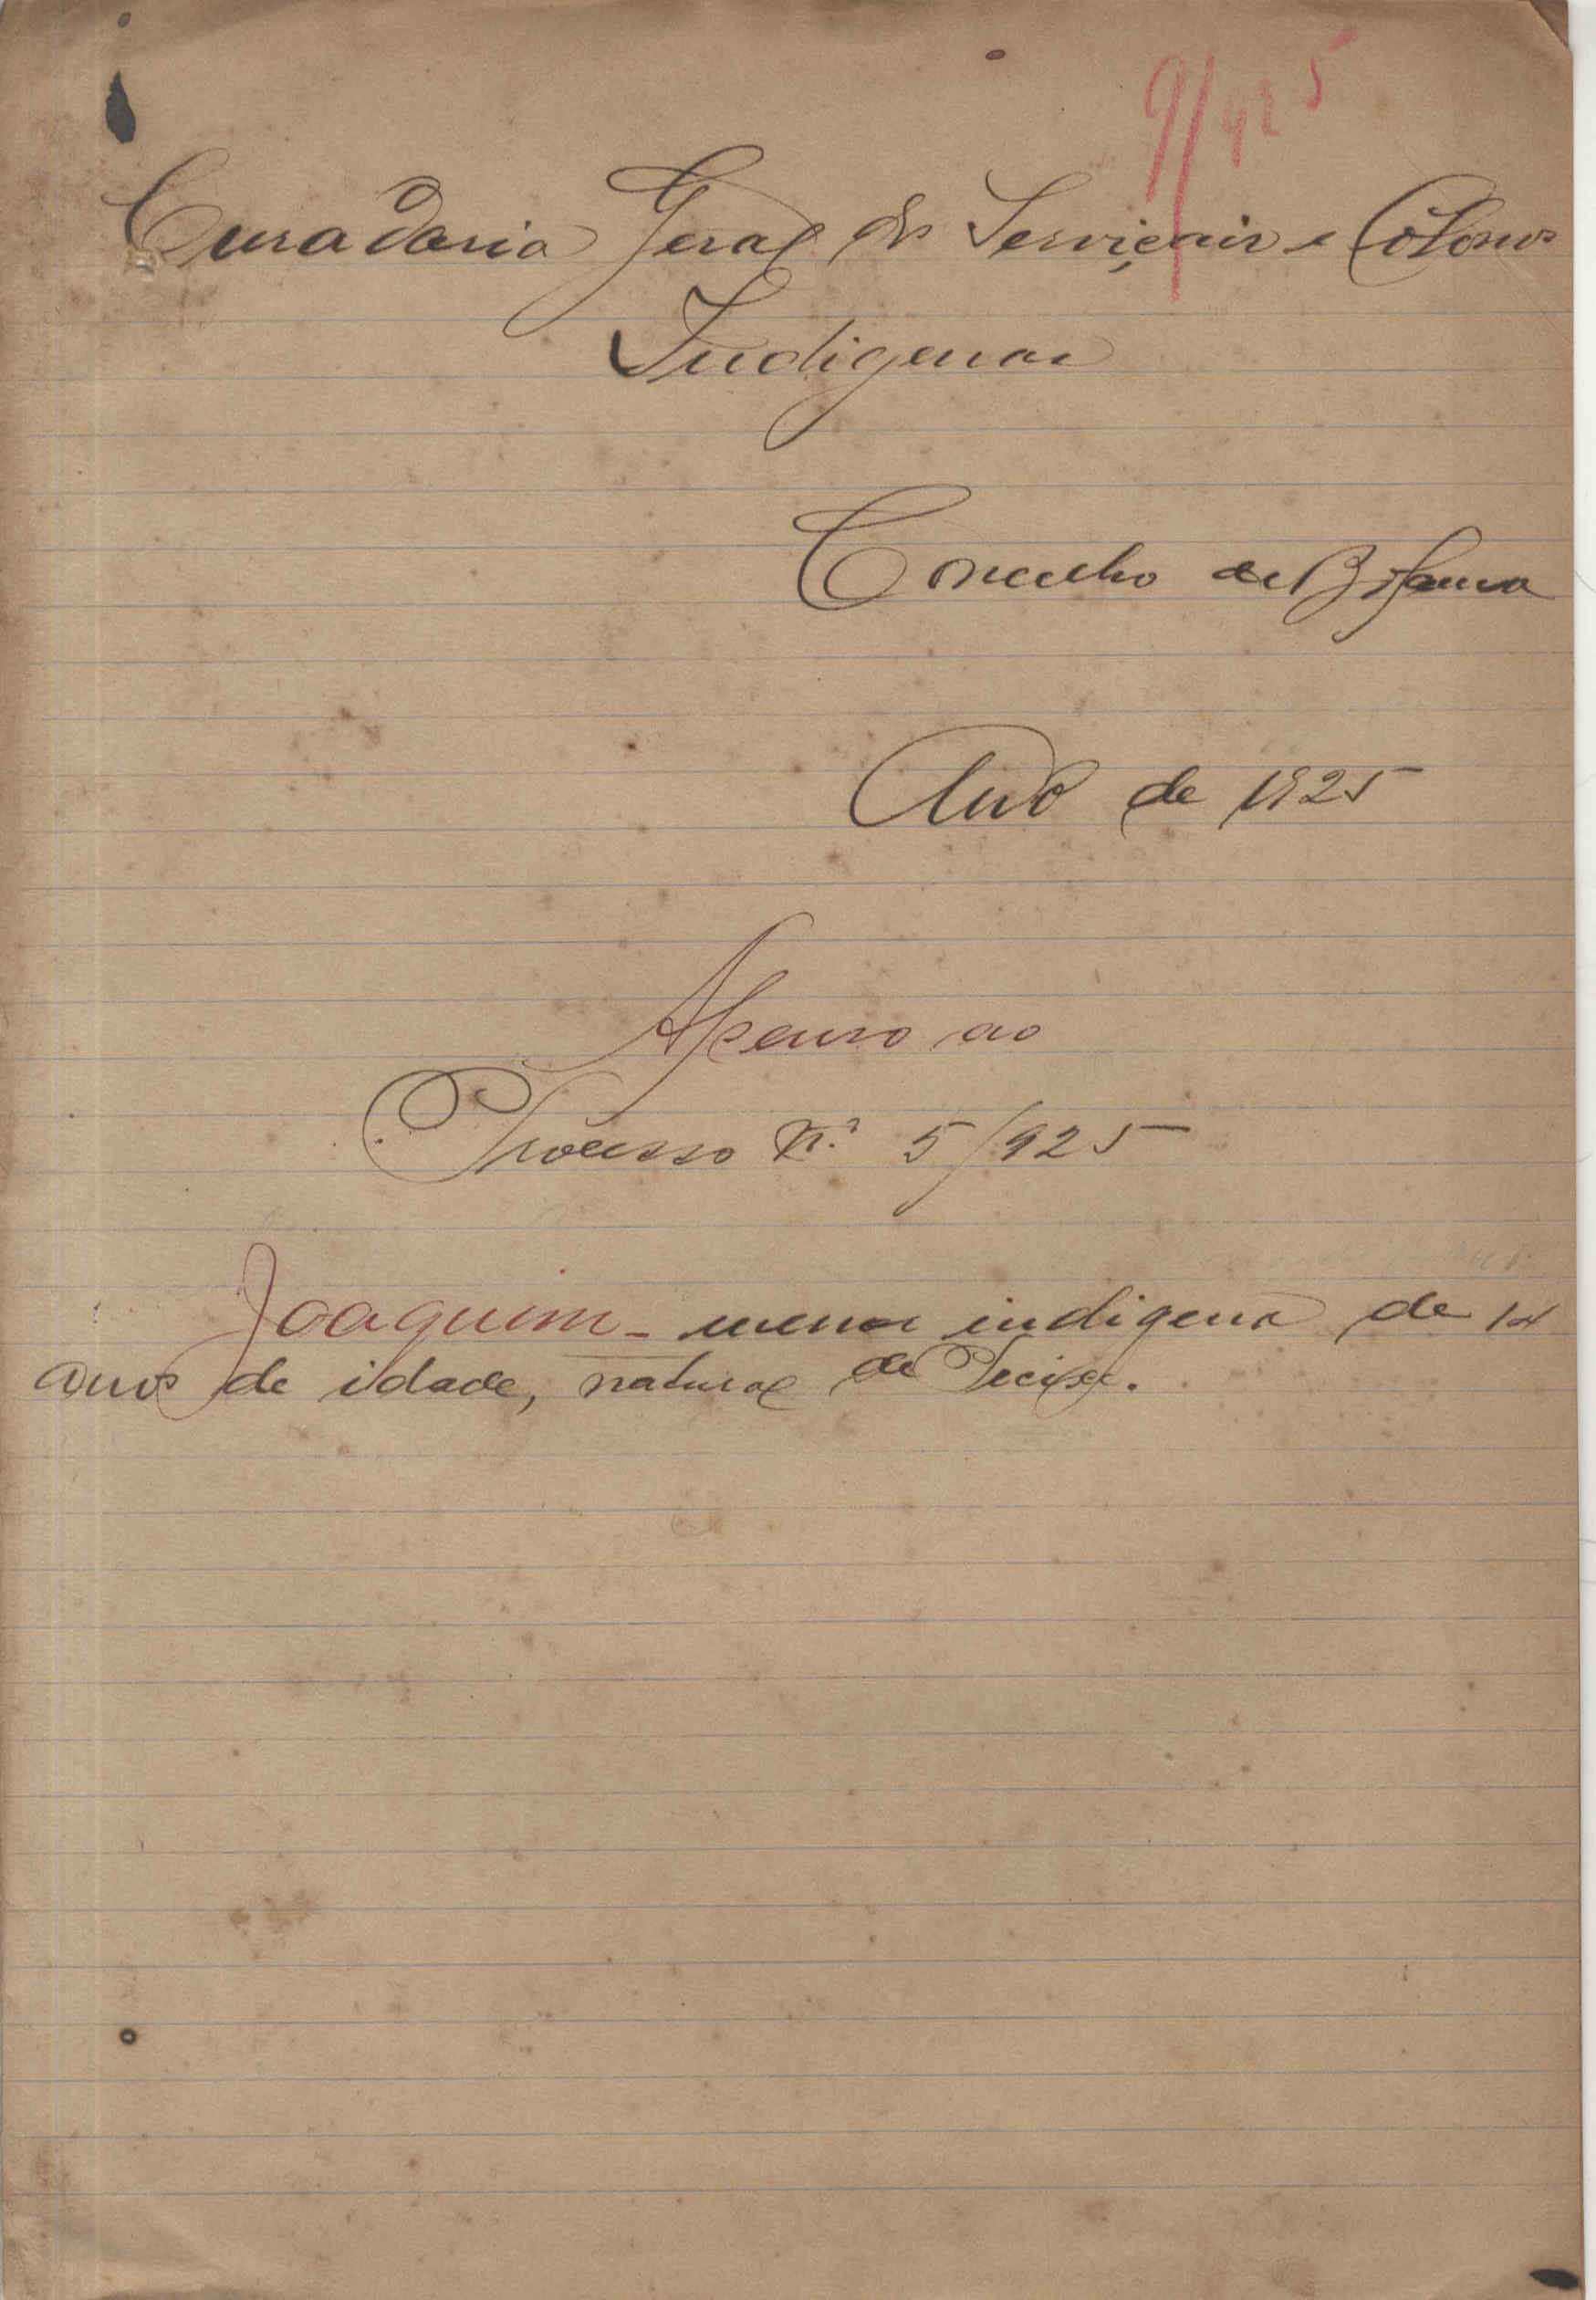 9/925
Curadoria Geral dos Serviçais e Colonos
Indigenas
Concelho de Bolama
Ano de 1925
Apenso ao
Processo n.º 5/925
Joaquim - menor indigena de 14
anos de idade, natural de Pecixe.